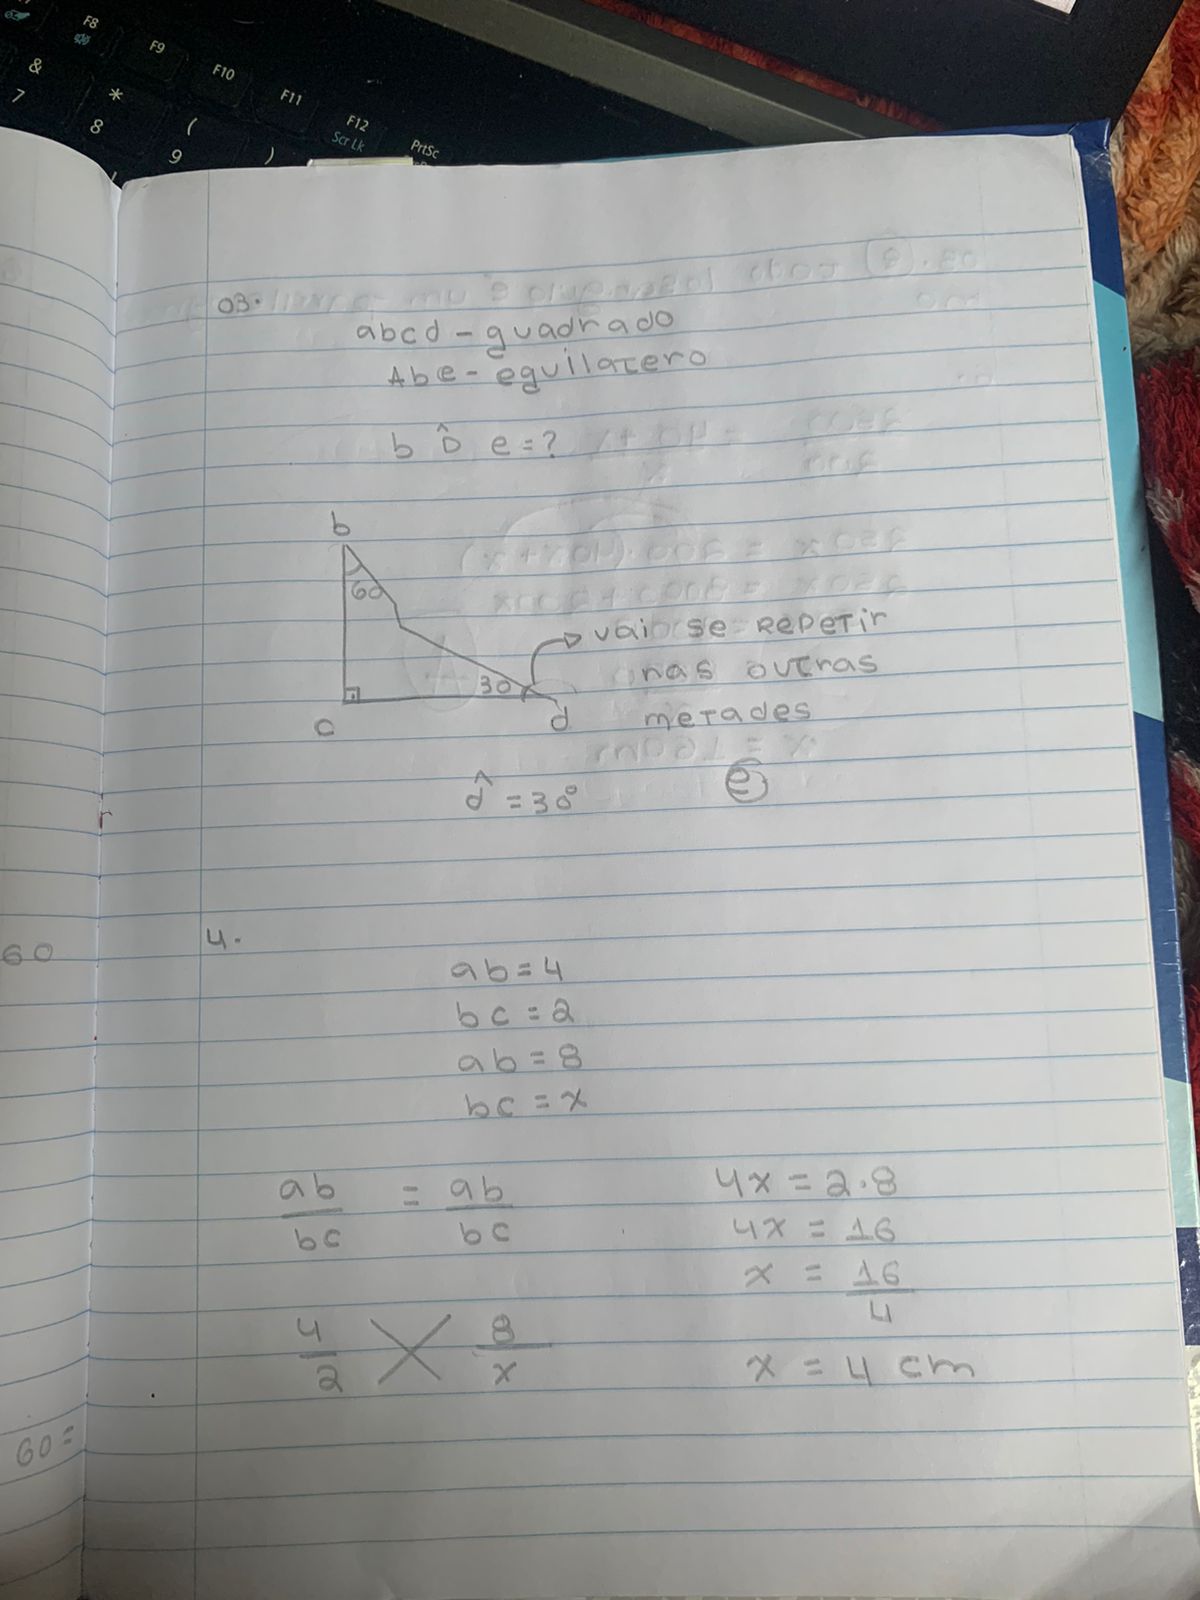 F8
F9
F10
F11
F12
Scr Lk
PrtSc
&
7
*
8
(
9
)
03.
abcd - quadrado
Abe - equilatero
b D̂ e = ?
b
60
30
c
d
vai se repetir
nas outras
metades
d̂ = 30°
e
60
4.
ab = 4
bc = 2
ab = 8
bc = x
ab/bc = ab/bc
4x = 2.8
4x = 16
x = 16/4
4/2 X 8/x
x = 4 cm
60 =